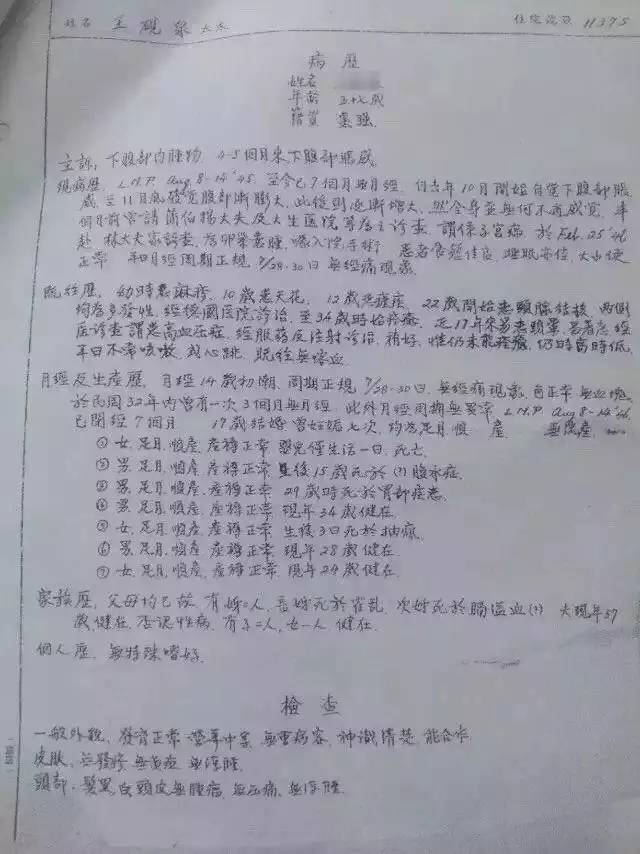 姓名 王硯泉太太 住院號頭 11375
病歷
姓名
年齡 五十七歲
籍貫 棗强
主訴, 下腹部內腫物, 4-5個月來下腹部脹感
現病歷, L.M.P. Aug 8-14'45, 至今已7個月無月經, 自去年10月開始自覺下腹部脹
感至11月底發覺腹部漸膨大, 此後則逐漸增大, 然全身並無何不適感覺, 半
個月前常請蕭伯揚大夫及大生医院等處主診查, 謂係子宮病, 於Feb. 25'46
赴 林大夫家診查, 為卵巢囊腫, 囑入院手術 患者食慾佳良, 睡眠安佳, 大小便
正常 和月經周期正規, 7/28-30日 無經痛現象.
既往歷, 幼時患麻疹, 10歲患天花, 12歲患瘧疾, 22歲開始患頸腺結核, 兩側
均為多發性, 經德國医院診治, 至34歲時始痊癒, 近17年來易患頭暈,
医診查謂患高血压症, 經服葯反注射診治, 稍好, 惟仍未能痊癒, 仍時高時低,
平日不常咳嗽, 或心跳, 既往無咯血
月經反生產歷, 月經14歲初潮, 周期正規 7/28-30日, 無經痛現象, 色正常無血塊,
於民國32年內曾有一次3個月無月經, 此外月經周期無異常 L.M.P. Aug 8-14'46,
已閉經7個月 17歲結婚曾妊娠七次, 均為足月順產, 無流產,
① 女, 足月, 順產, 產褥正常 嬰兒僅生活一日, 死亡,
② 男, 足月, 順產, 產褥正常 生後15歲死於(?)腹水症,
③ 男, 足月, 順產, 產褥正常 29歲時死於胃部疾患,
④ 男, 足月, 順產, 產褥正常 現年34歲健在,
⑤ 女, 足月, 順產, 產褥正常 生後3日死於抽瘋,
⑥ 男, 足月, 順產, 產褥正常 現年28歲健在,
⑦ 女, 足月, 順產, 產褥正常 現年24歲健在,
家族歷, 父母均已故, 有姊二人, 長姊死於霍乱, 次姊死於腦溢血(?) 夫現年57
歲健在, 否認性病, 有子二人, 女一人, 健在.
個人歷, 無特殊嗜好.
檢查
一般外觀, 發育正常 營養中等, 無重病容, 神識清楚, 能合作
皮膚, 無發疹 無黃疸, 無浮腫
頭部, 髮黑白, 頭皮無腫瘤, 無压痛, 無浮腫